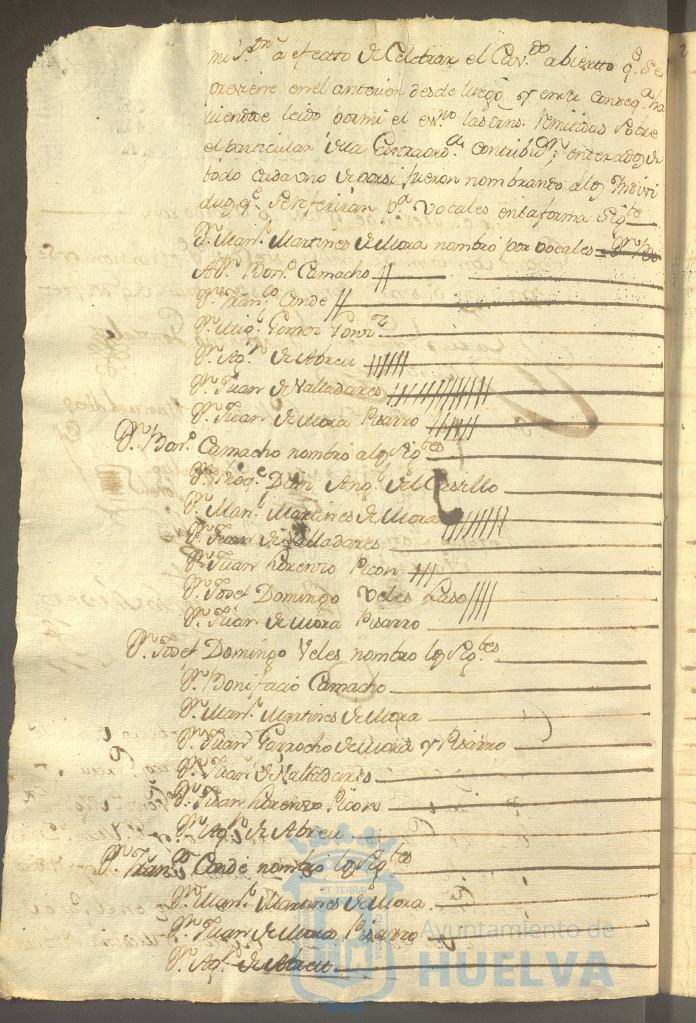 a efecto de Celebrar el Cav.do abierto q.e se
previene en el anterior desde luego y en su conseq.a ha
viendose leido por mi el ess.no las ordns. remitidas sobre
el particular de la Extraord.a Contribuc.n, y enterados de
todo cada uno de por si fueron nombrando a los Indivi
duos q.e se referirán p.a vocales en la forma sig.te
D.n Man.l Martines de Mora nombró por vocales
A D.n Bon.o Camacho //
D.n Fran.co Conde //
D.n Mig.l Garros
D.n Ag.n de Abreu //////
D.n Juan de Valladares
D.n Juan de Mora Pisarro
D.n Bon.o Camacho nombró a los sig.tes
D.n Ang.l del Castillo
D.n Man.l Martines de Mora
D.n Juan de Valladares
D.n Juan Lorenzo Picon ///
D.n Josef Domingo Veles Laso ////
D.n Juan de Mora Pisarro
D.n Josef Domingo Veles nombró los sig.tes
D.n Bonifacio Camacho
D.n Man.l Martines de Mora
D.n Juan Garrocho de Mora y Pisarro
D.n Juan de Valladares
D.n Juan Lorenzo Picon
D.n Ag.n de Abreu
D.n Fran.co Conde nombró los sig.tes
D.n Man.l Martines de Mora
D.n Juan de Mora Pisarro
D.n Ag.n de Abreu
Ayuntamiento de
HUELVA